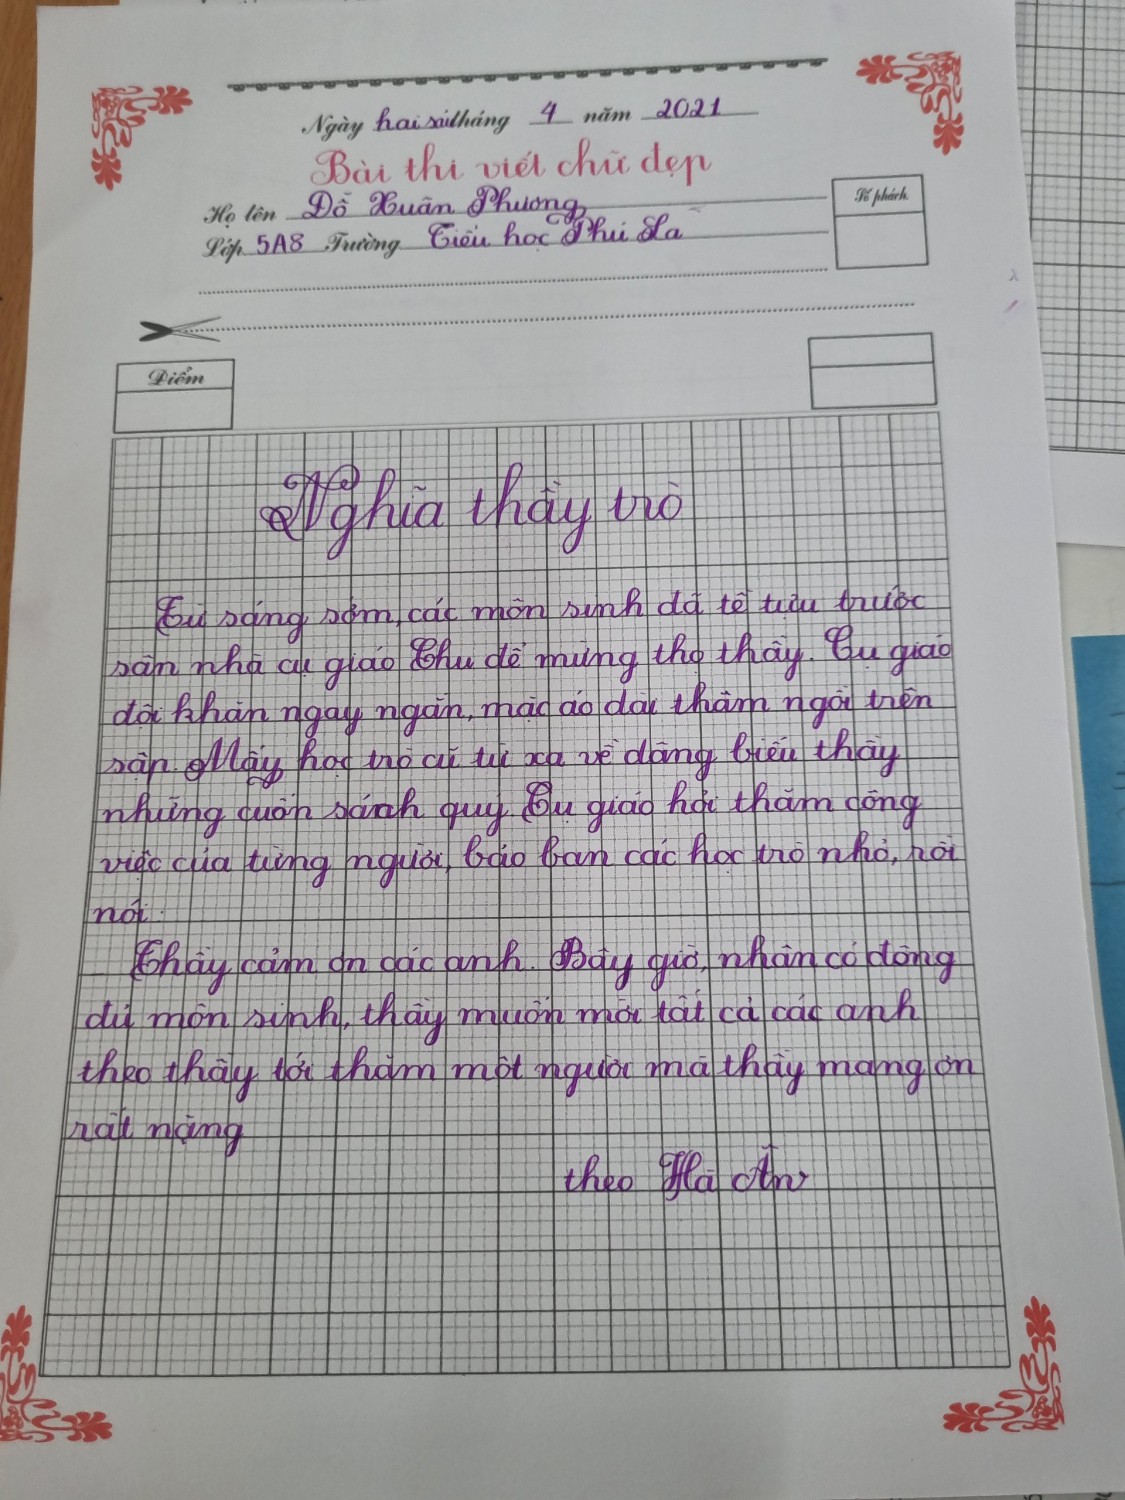 Ngày hai sáu tháng 4 năm 2021
Bài thi viết chữ đẹp
Họ tên Đỗ Xuân Phương
Số phách
Lớp 5A8 Trường Tiểu học Phú La
Điểm
Nghĩa thầy trò
Từ sáng sớm, các môn sinh đã tề tựu trước
sân nhà cụ giáo Chu để mừng thọ thầy. Cụ giáo
đội khăn ngay ngắn, mặc áo dài thâm ngồi trên
sập. Mấy học trò cũ từ xa về dâng biếu thầy
những cuốn sách quý. Cụ giáo hỏi thăm công
việc của từng người, bảo ban các học trò nhỏ, rồi
nói:
Thầy cảm ơn các anh. Bây giờ, nhân có đông
đủ môn sinh, thầy muốn mời tất cả các anh
theo thầy tới thăm một người mà thầy mang ơn
rất nặng
theo Hà Ân